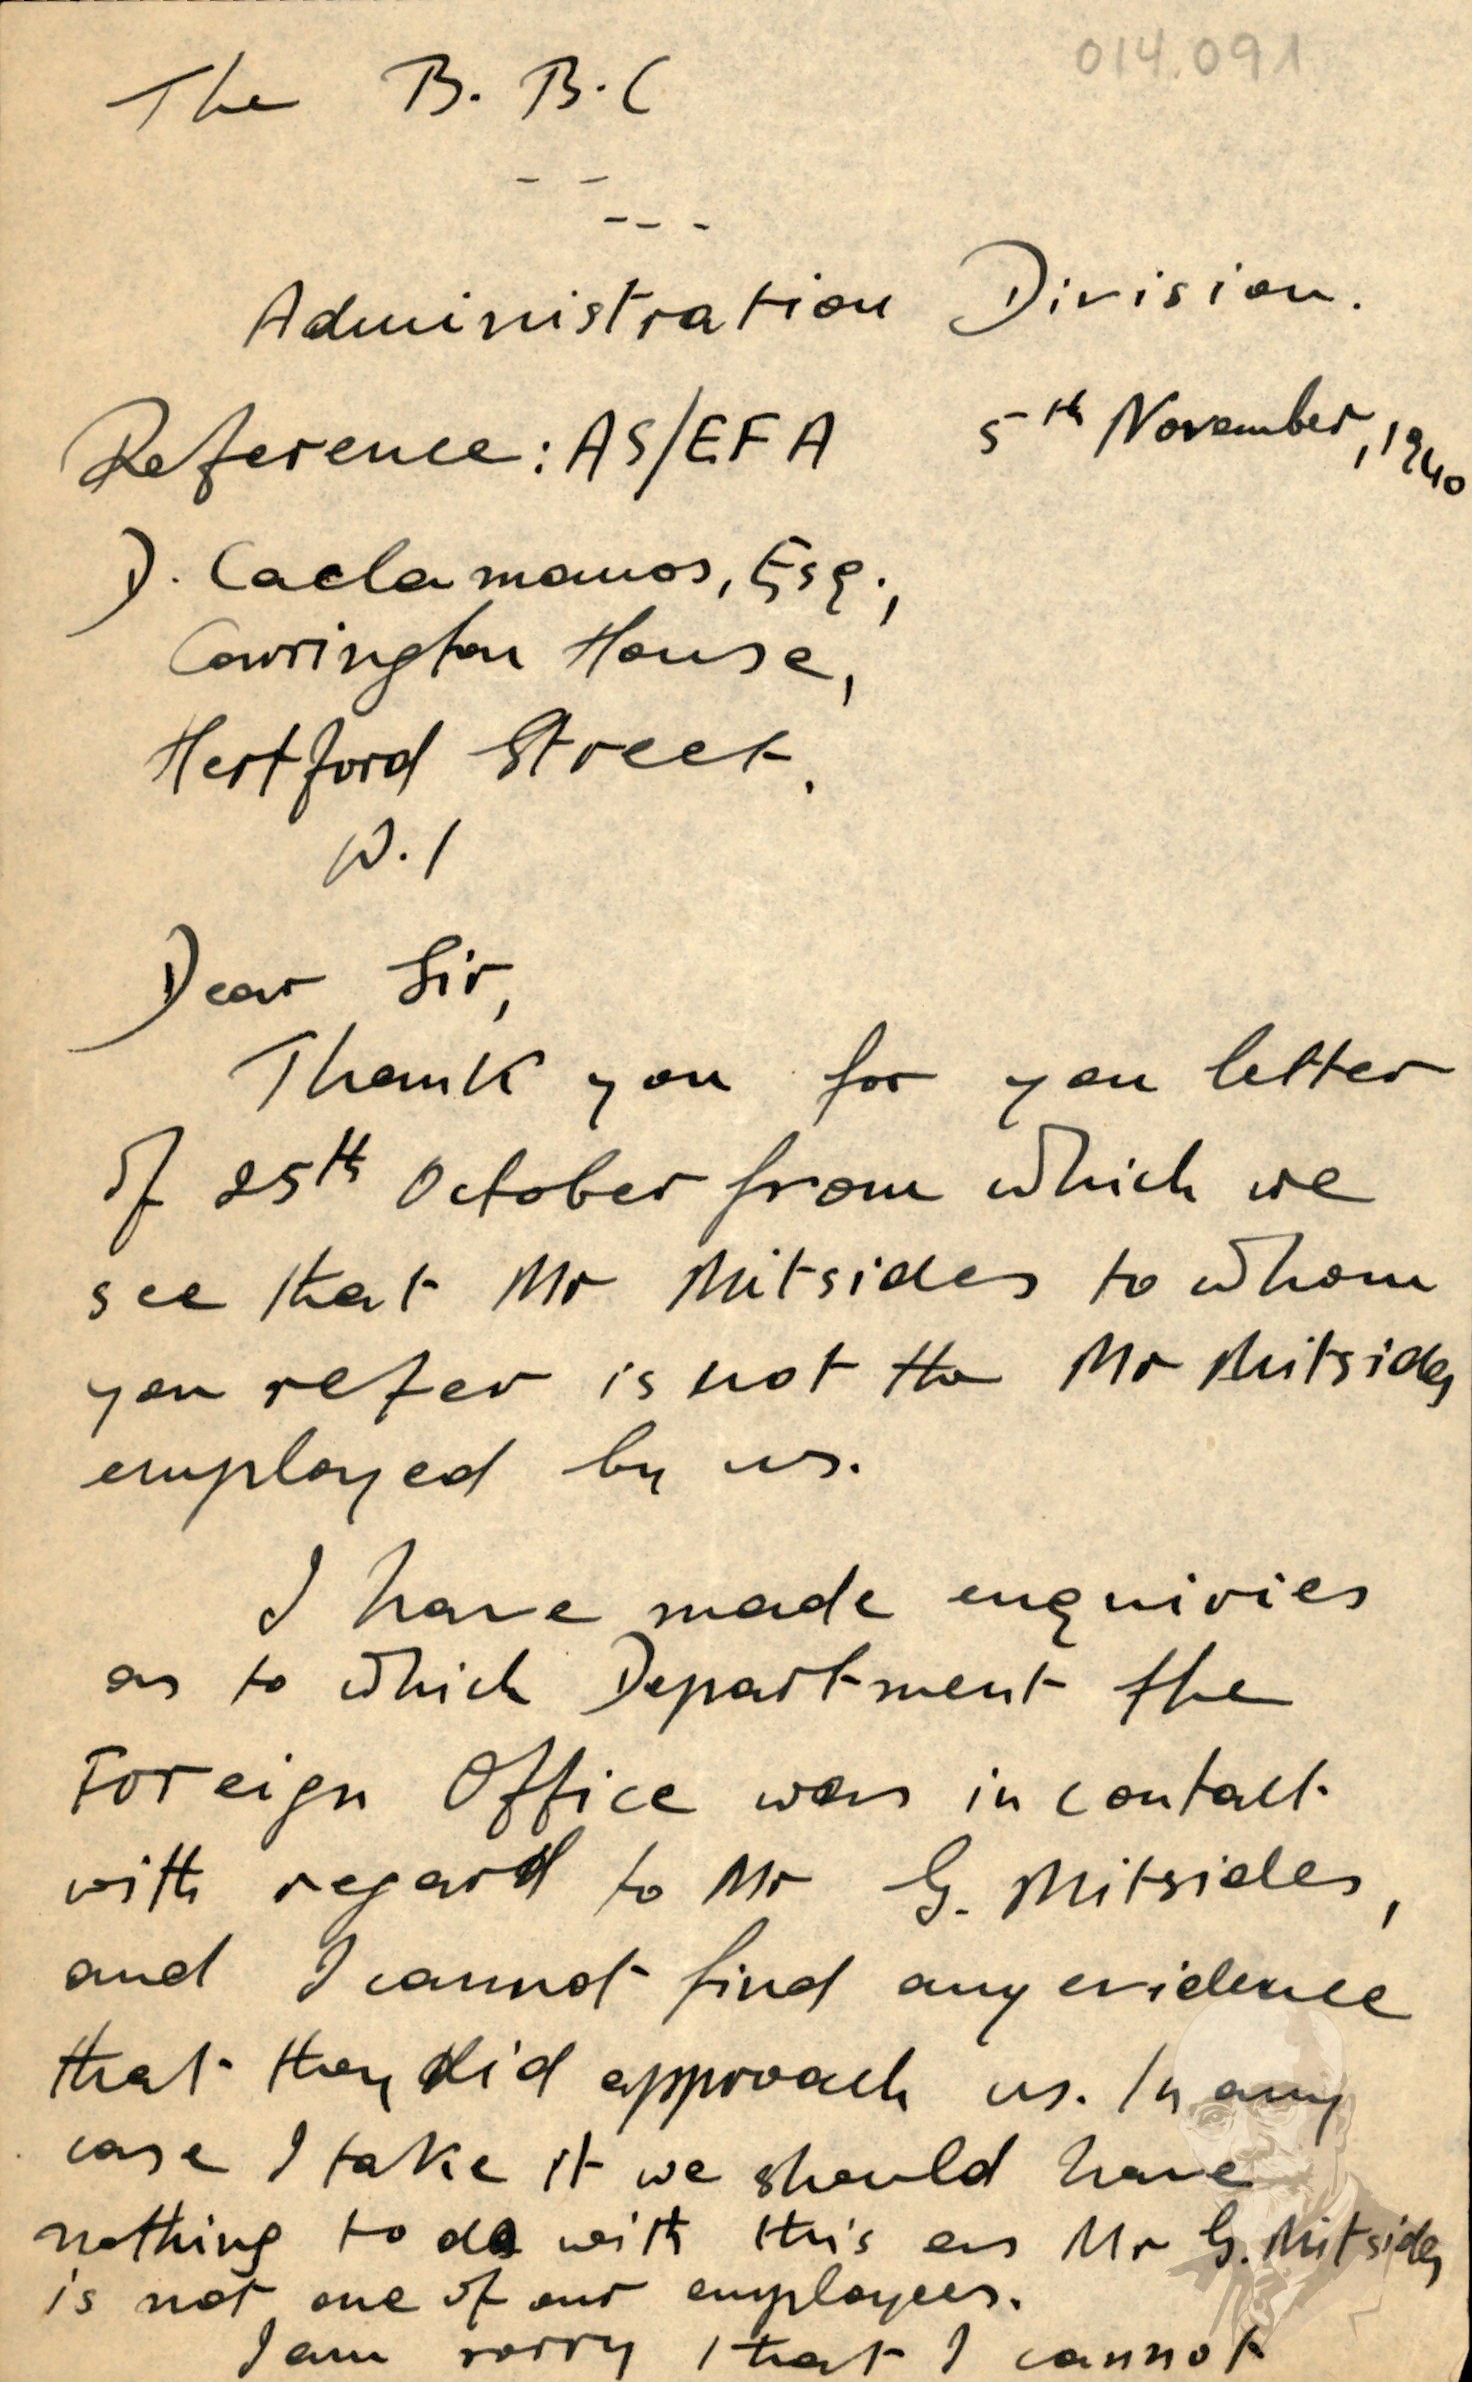 014.091
The B. B. C
Administration Division.
Reference: AS/EFA 5th November, 1940
D. Caclamanos, Esq.,
Carrington House,
Hertford Street.
W. 1
Dear Sir,
Thank you for you letter
of 25th October from which we
see that Mr Mitsides to whom
you refer is not the Mr Mitsides
employed by us.
I have made enquiries
as to which Department the
Foreign Office was in contact
with regard to Mr G. Mitsides,
and I cannot find any evidence
that they did approach us. In any
case I take it we should have
nothing to do with this as Mr G. Mitsides
is not one of our employees.
I am sorry that I cannot